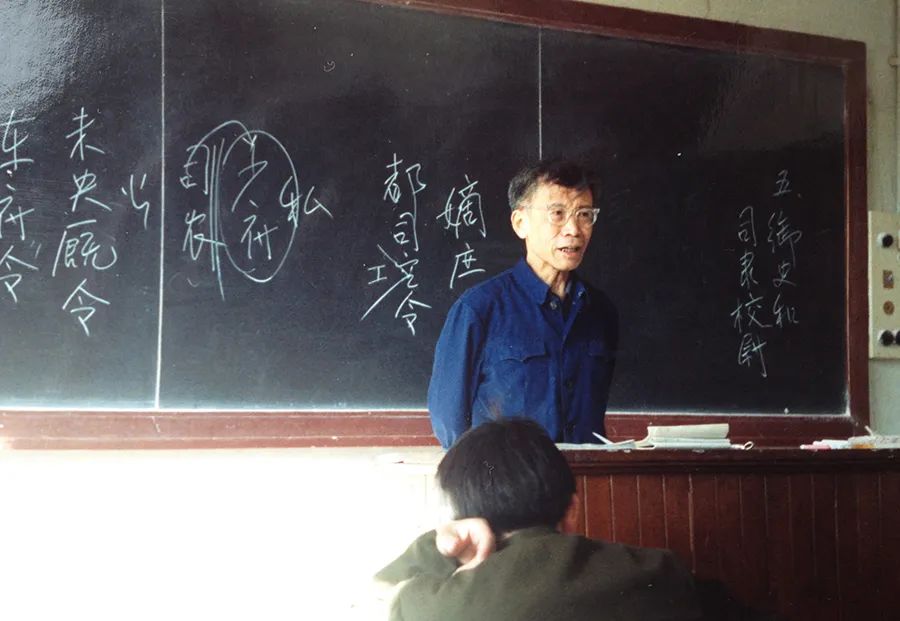 五、御史和
司隶校尉
嫡庶
都司空令
私
少府
司农
少
未央厩令
车府令